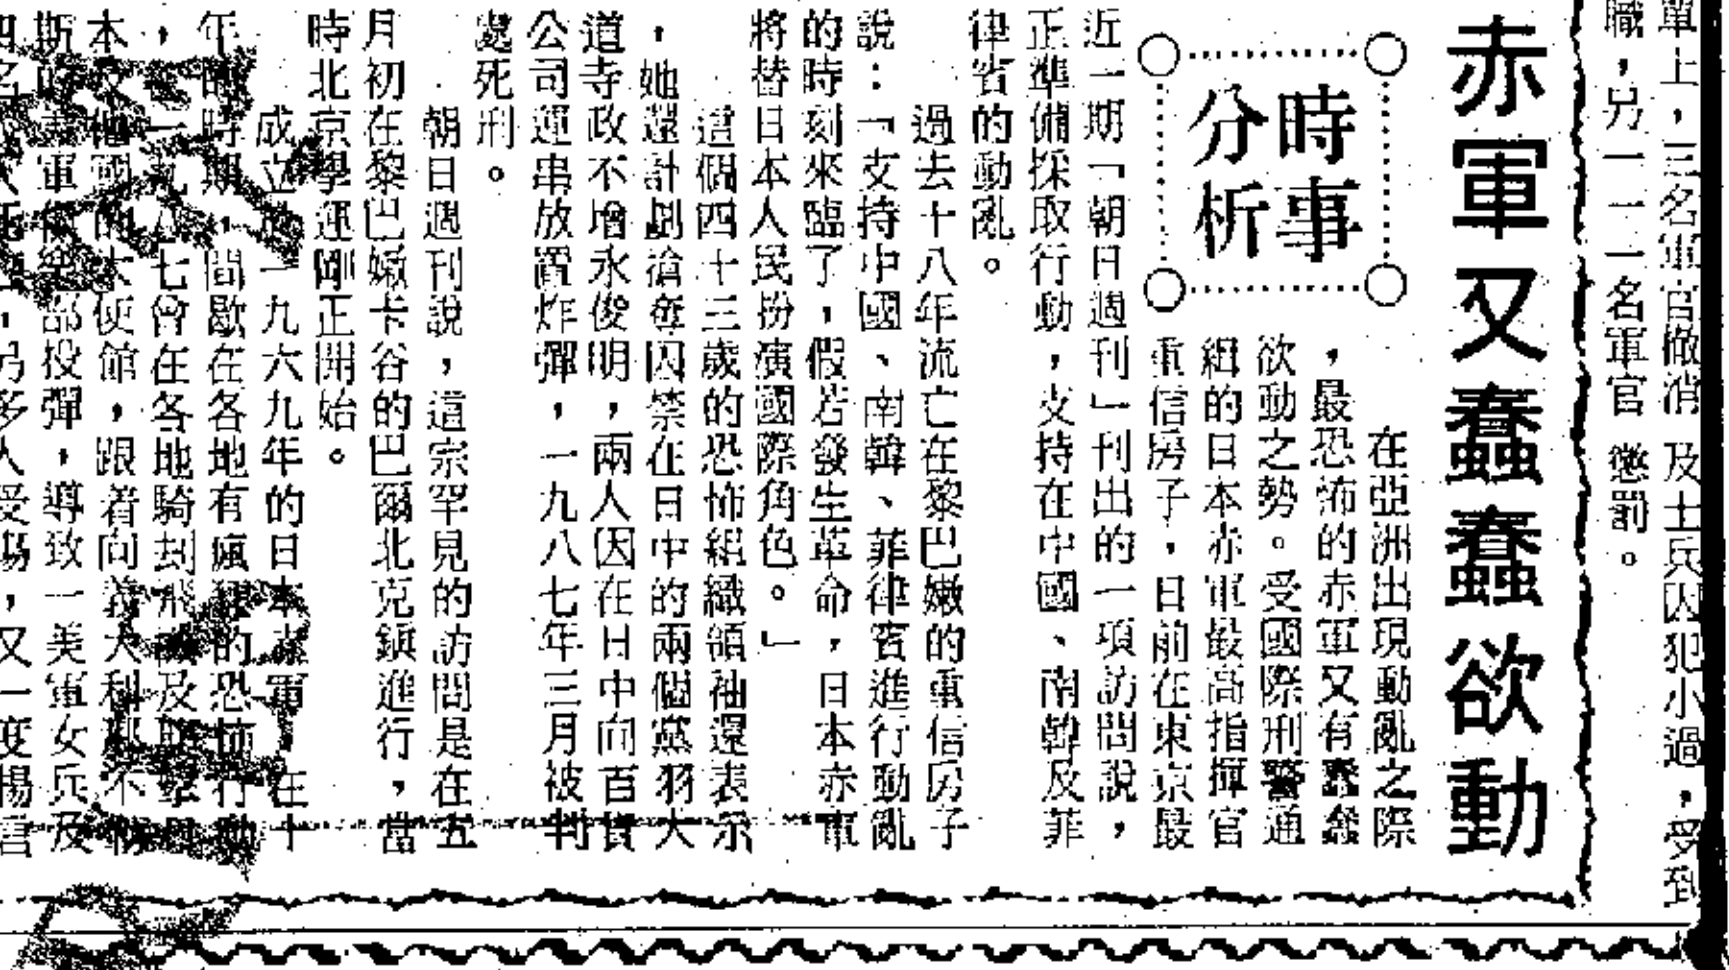 單上，三名軍官撤消
職，另一一一名軍官
及士兵因犯小過，受到
懲罰。
赤軍又蠢蠢欲動
時事
分析
在亞洲出現動亂之際
，最恐怖的赤軍又有蠢蠢
欲動之勢。受國際刑警通
緝的日本赤軍最高指揮官
重信房子，日前在東京最
近一期「朝日週刊」刊出的一項訪問說，
正準備採取行動，支持在中國、南韓及菲
律賓的動亂。
過去十八年流亡在黎巴嫩的重信房子
說：「支持中國、南韓、菲律賓進行動亂
的時刻來臨了，假若發生革命，日本赤軍
將替日本人民扮演國際角色。」
這個四十三歲的恐怖組織領袖還表示
，她還計劃搶奪囚禁在日中的兩個黨羽大
道寺政不增永俊明，兩人因在日中向百貨
公司運串放置炸彈，一九八七年三月被判
處死刑。
朝日週刊說，這宗罕見的訪問是在五
月初在黎巴嫩卡谷的巴爾北克鎮進行，當
時北京學運剛正開始。
成立於一九六九年的日本赤軍，在十
年的時期，間歇在各地有瘋狂的恐怖行動
，一九八七曾在各地騎刦飛機及
本及他國的大使館，跟着向義大利那不勒
斯的美軍俱樂部投彈，導致一美軍女兵及
四名人死亡，另多人受傷，又一度揚言